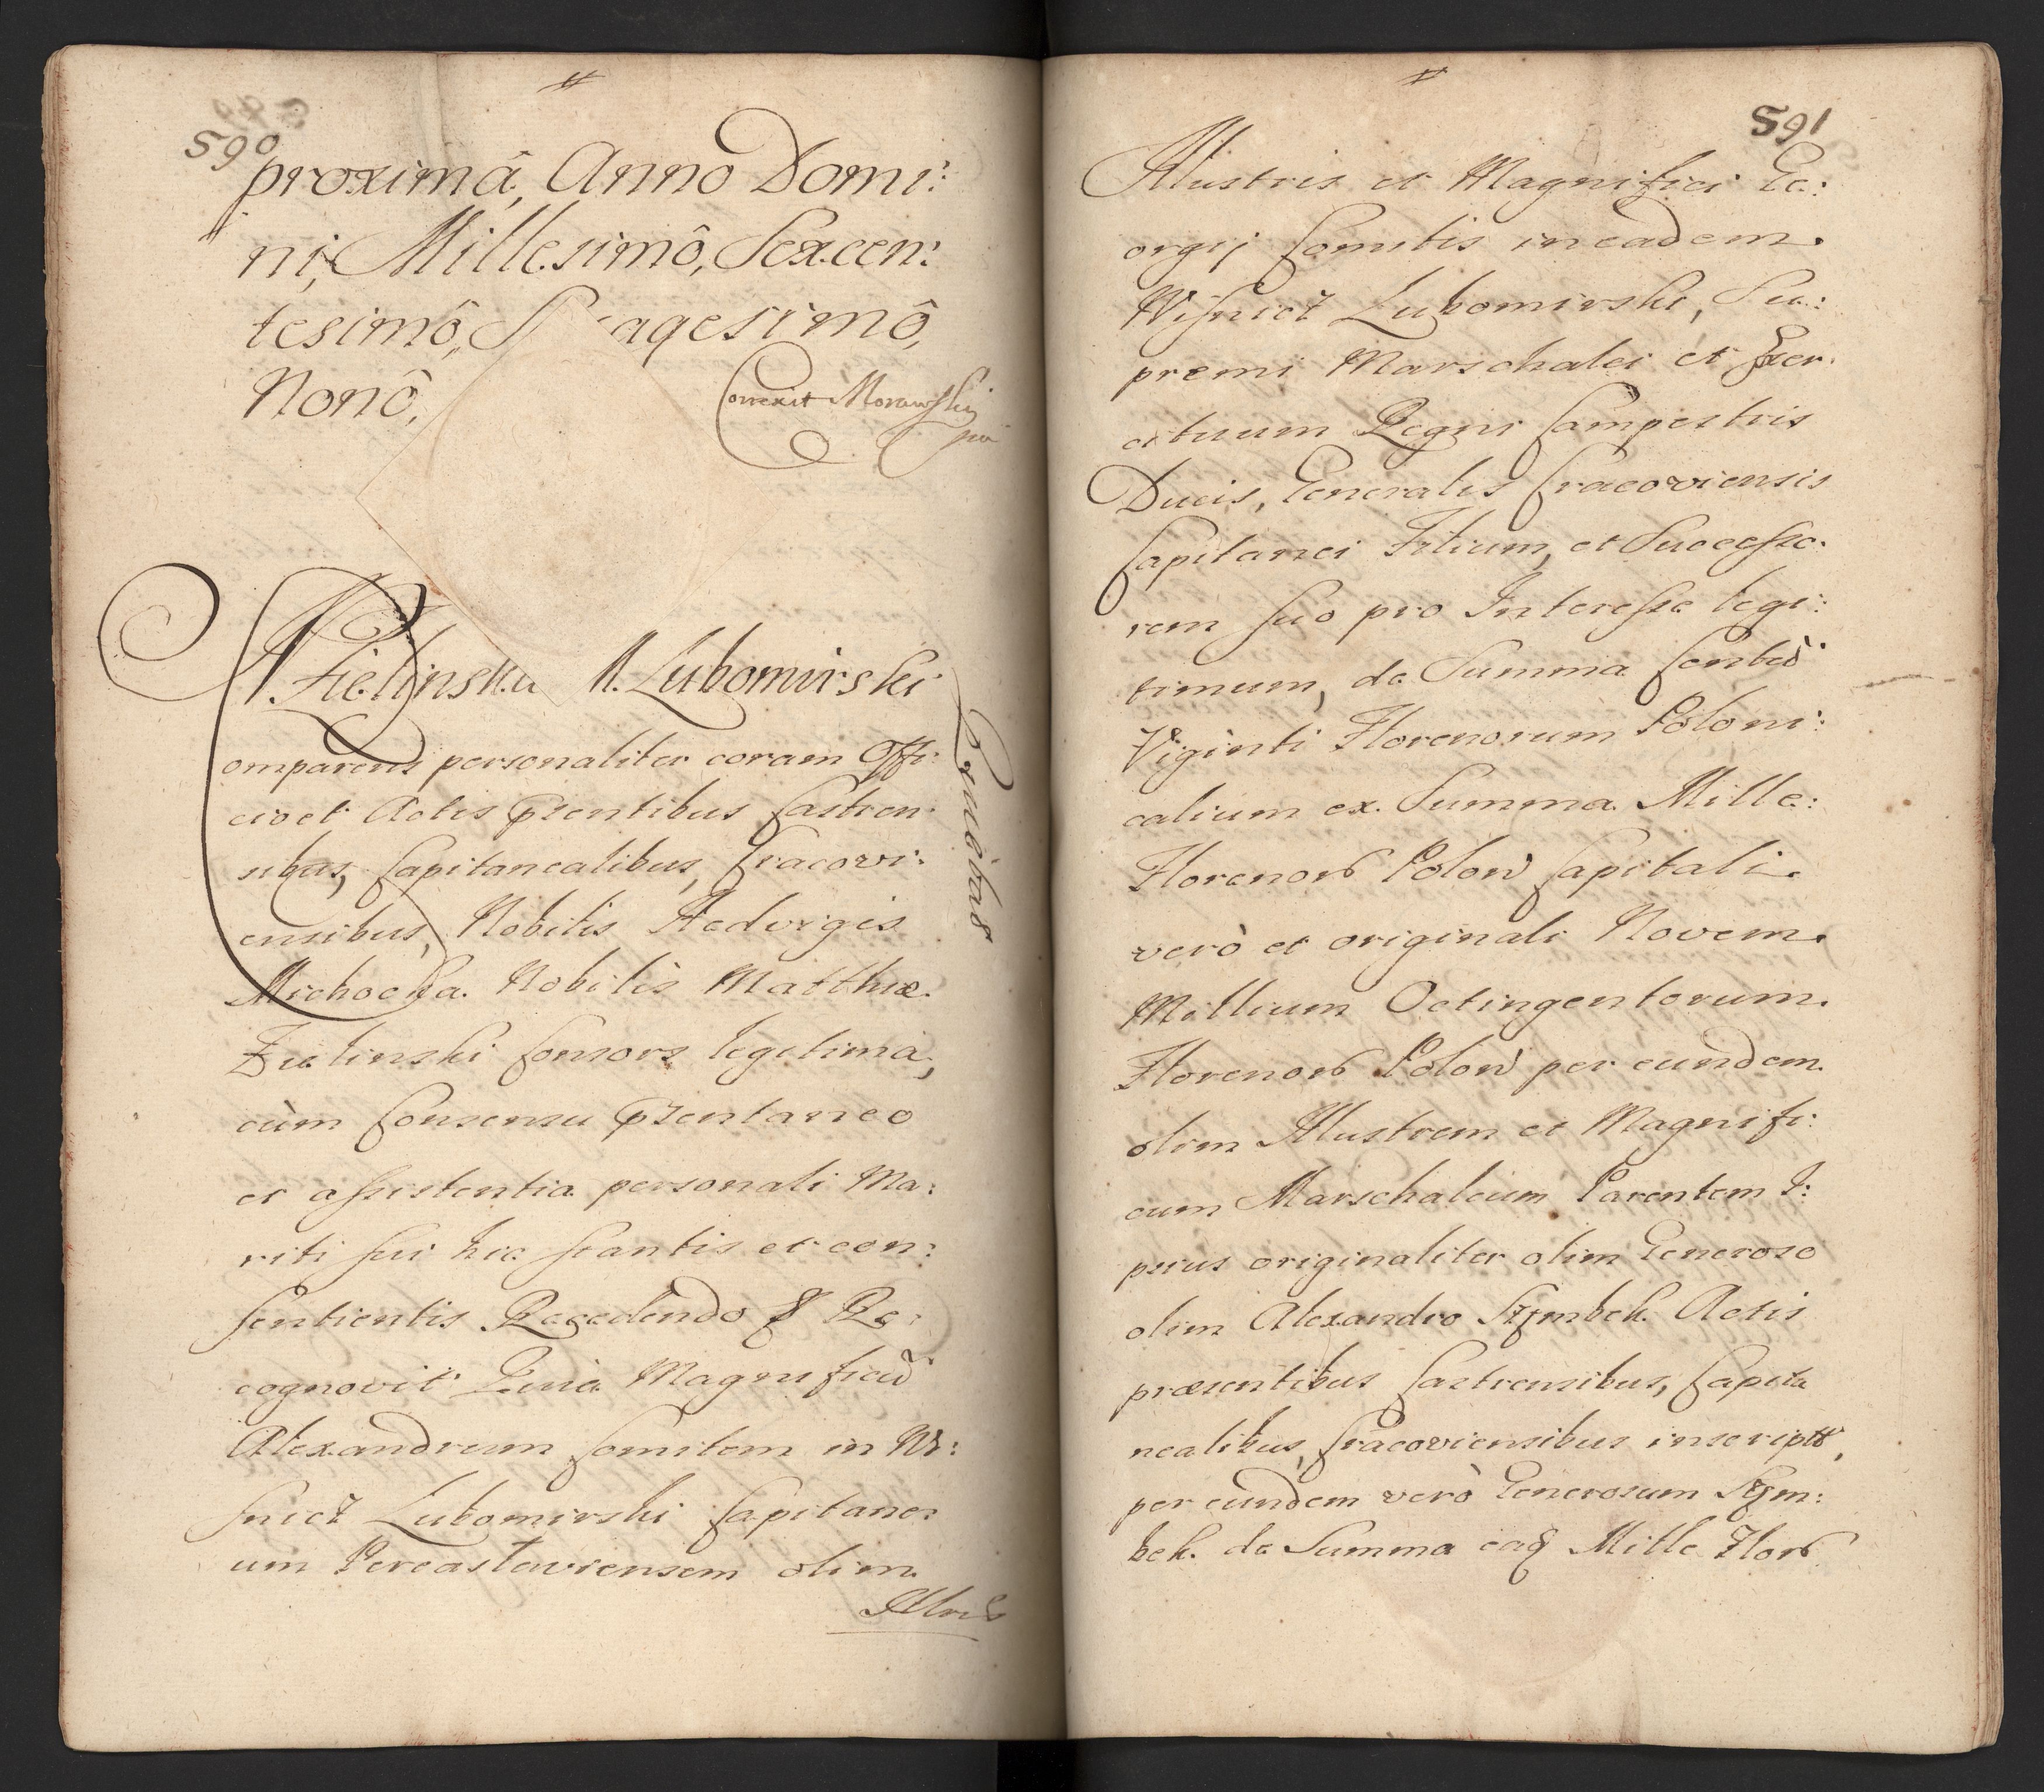 590
proximâ, Anno Domi:
ni, Millesimô, Sexcen:
tesimô, S agesimô,
Nonô,
Correxit Morawski
mp
A. Zielinska M. Lubomirski
Comparens personaliter coram Offi:
cio et Actis pñtibus Castren:
sibus, Capitanealibus, Cracovi:
ensibus, Nobilis Hedvigis
Michocka Nobilis Matthiæ
Zielinski Consors legitima,
cùm Consensu pñtaneo
et assistentia personali Ma:
riti sui hic stantis et con:
sentientis Recedendo & Re:
cognovit Quia Magnificũ
Alexandrum Comitem in Wi:
snicz Lubomirski Capitane:
um Pereaslaviensem olim
Illris
591
Illustris et Magnifici Ge:
orgij Comitis in eadem
Wisnicz Lubomirski, Su:
premi Marschalci et Exer:
cituum Regni Campestris
Ducis, Generalis Cracoviensis
Capitanei Filium, et Successo:
rem suo pro Interesse legi:
timum, de Summa Centũ
Viginti Florenorum Poloni:
calium ex Summa Mille
Florenorũ Polon̄ Capitali
verò et originali Novem
Millium Octingentorum
Florenorũ Polon̄ per eundem
olim Illustrem et Magnifi:
cum Marschalcum Parentem I:
psius originaliter olim Generoso
olim Alexandro Szembek Actis
præsentibus Castrensibus, Capita
nealibus, Cracoviensibus inscriptã,
per eundem verò Generosum Szem:
bek de Summa eaq̃ Mille Florũ